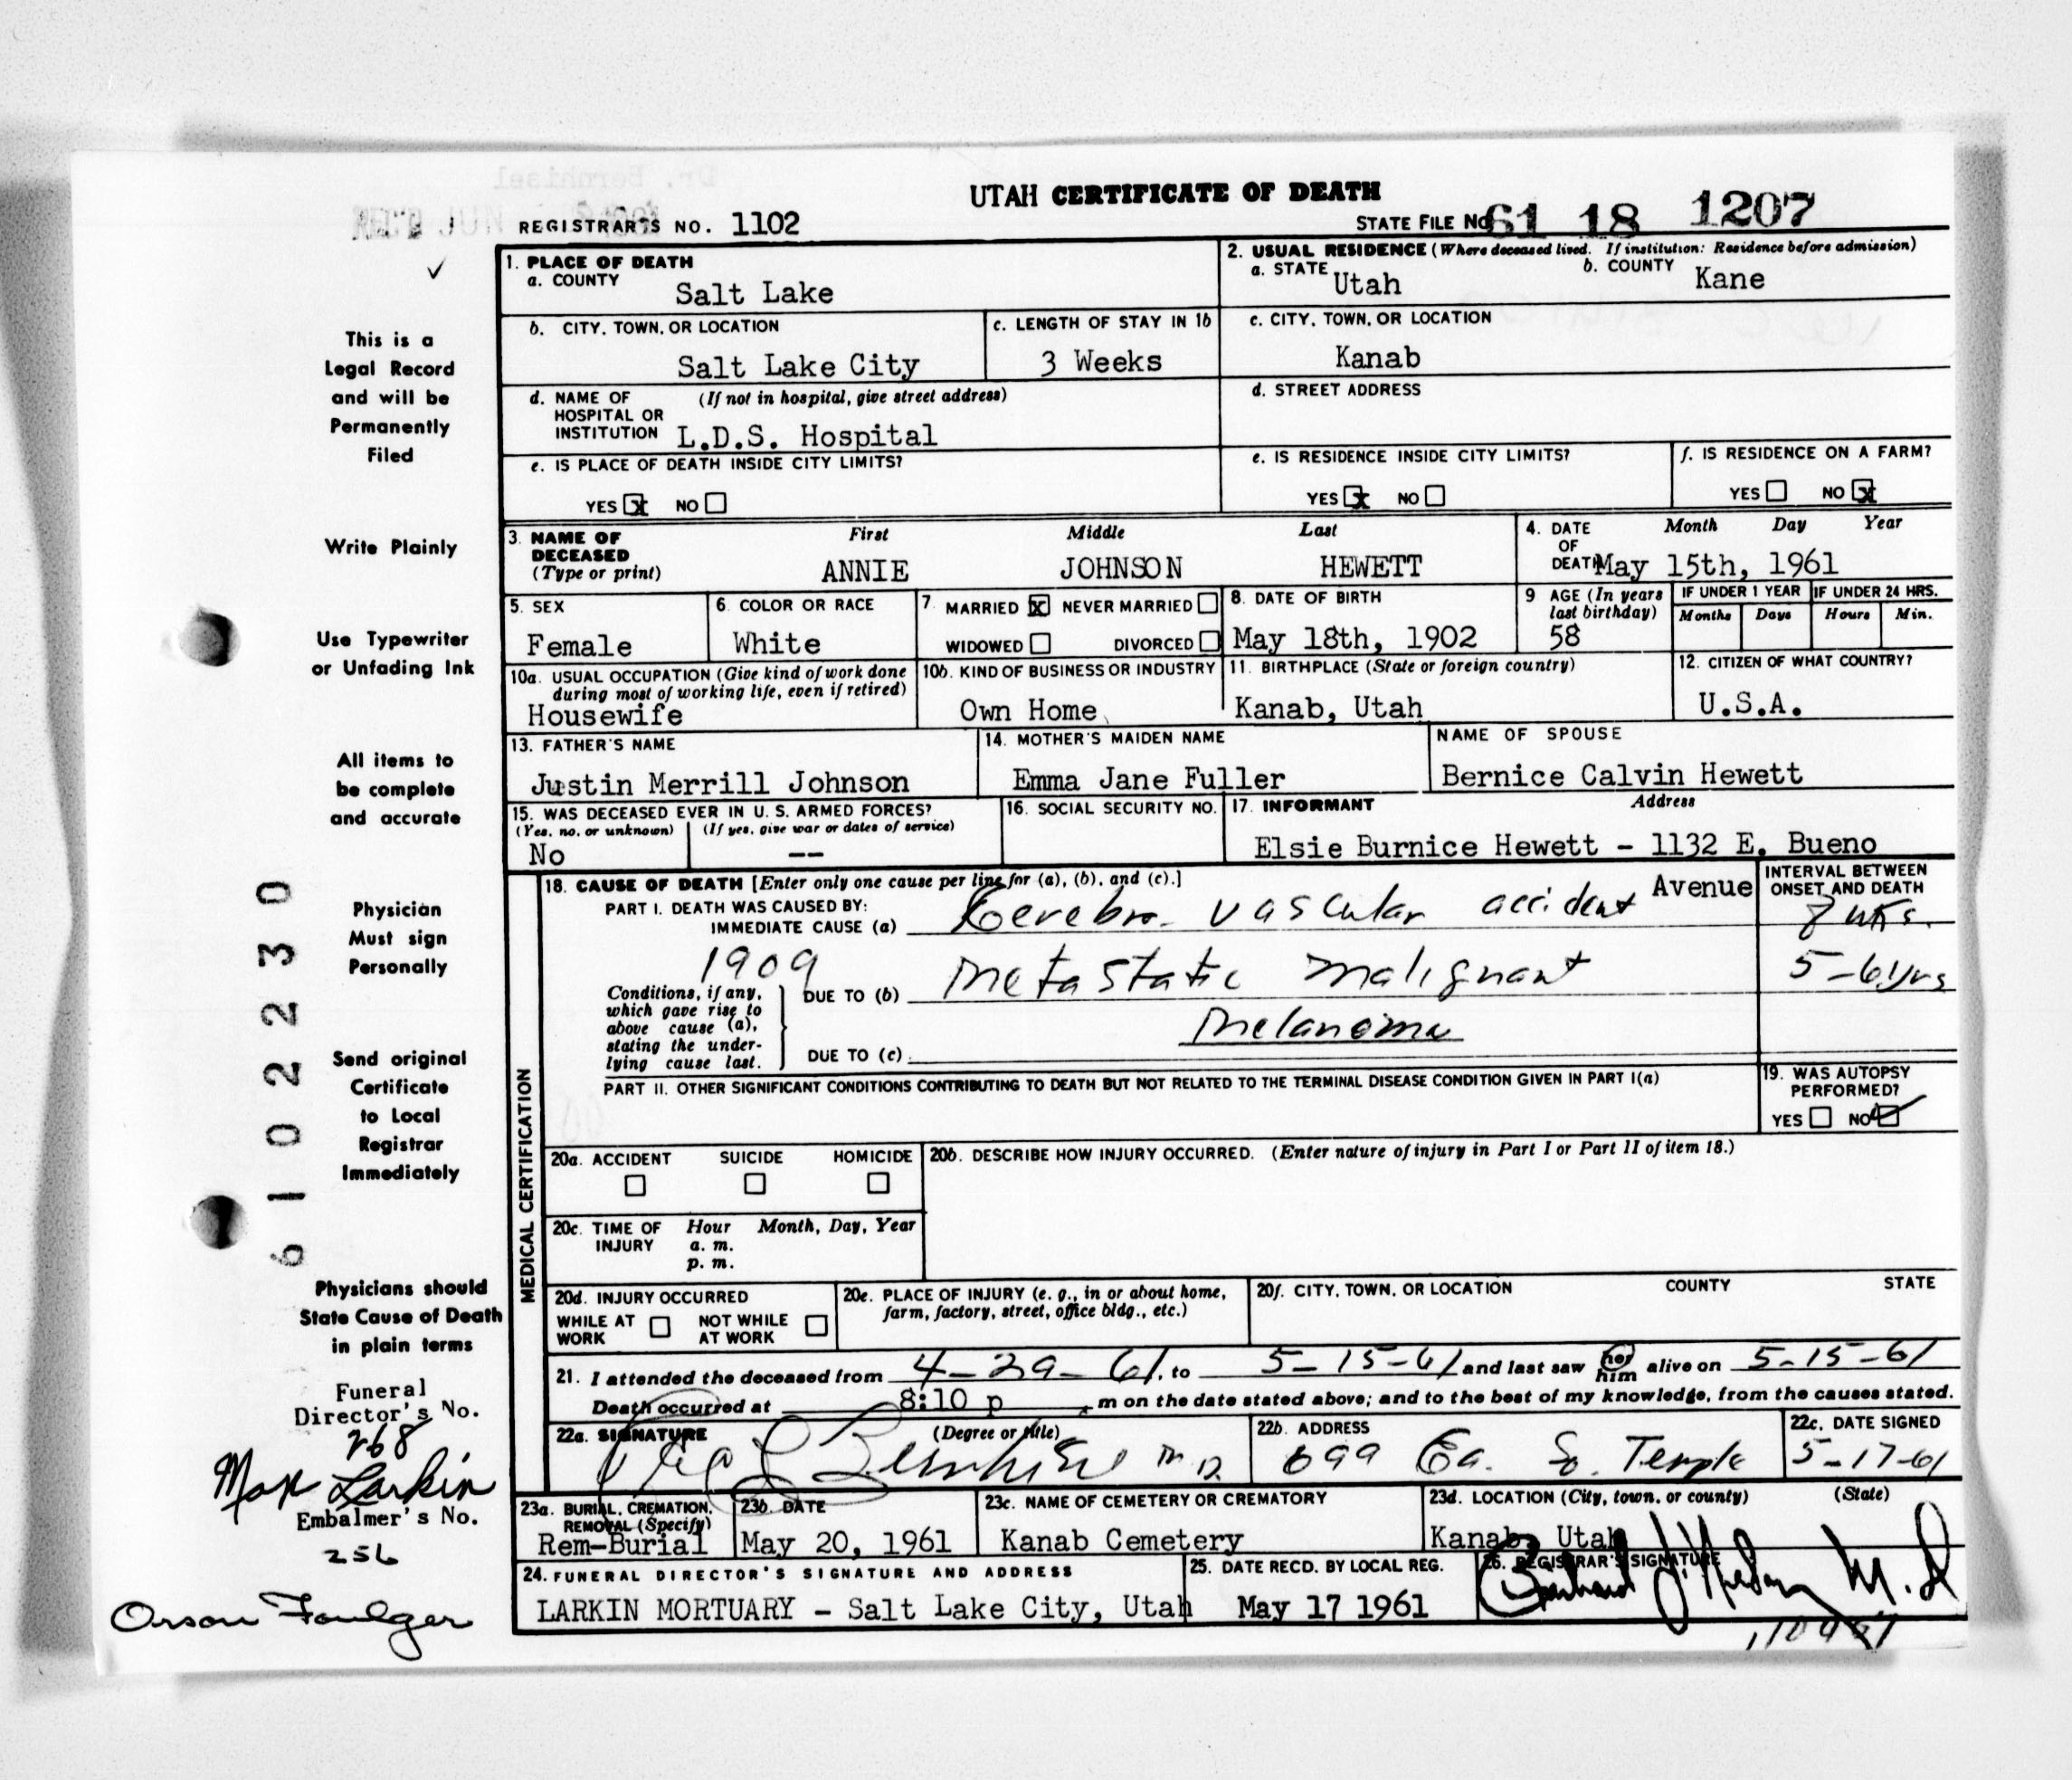 UTAH CERTIFICATE OF DEATH
REGISTRAR'S NO. 1102
STATE FILE NO. 61 18 1207
This is a
Legal Record
and will be
Permanently
Filed
Write Plainly
Use Typewriter
or Unfading Ink
All items to
be complete
and accurate
Physician
Must sign
Personally
Send original
Certificate
to Local
Registrar
Immediately
Physicians should
State Cause of Death
in plain terms
Funeral
Director's No.
268
Max Larkin
Embalmer's No.
256
Orson Foulger
6102230
1. PLACE OF DEATH
a. COUNTY
Salt Lake
b. CITY, TOWN, OR LOCATION
Salt Lake City
c. LENGTH OF STAY IN 1b
3 Weeks
d. NAME OF HOSPITAL OR INSTITUTION (If not in hospital, give street address)
L.D.S. Hospital
e. IS PLACE OF DEATH INSIDE CITY LIMITS?
YES x NO
2. USUAL RESIDENCE (Where deceased lived. If institution: Residence before admission)
a. STATE Utah
b. COUNTY Kane
c. CITY, TOWN, OR LOCATION
Kanab
d. STREET ADDRESS
e. IS RESIDENCE INSIDE CITY LIMITS?
YES x NO
f. IS RESIDENCE ON A FARM?
YES NO x
3. NAME OF DECEASED (Type or print)
First Middle Last
ANNIE JOHNSON HEWETT
4. DATE OF DEATH Month Day Year
May 15th, 1961
5. SEX
Female
6. COLOR OR RACE
White
7. MARRIED x NEVER MARRIED
WIDOWED DIVORCED
8. DATE OF BIRTH
May 18th, 1902
9 AGE (In years last birthday)
58
IF UNDER 1 YEAR IF UNDER 24 HRS.
Months Days Hours Min.
10a. USUAL OCCUPATION (Give kind of work done during most of working life, even if retired)
Housewife
10b. KIND OF BUSINESS OR INDUSTRY
Own Home
11. BIRTHPLACE (State or foreign country)
Kanab, Utah
12. CITIZEN OF WHAT COUNTRY?
U.S.A.
13. FATHER'S NAME
Justin Merrill Johnson
14. MOTHER'S MAIDEN NAME
Emma Jane Fuller
NAME OF SPOUSE
Bernice Calvin Hewett
15. WAS DECEASED EVER IN U. S. ARMED FORCES?
(Yes, no, or unknown) (If yes, give war or dates of service)
No --
16. SOCIAL SECURITY NO.
17. INFORMANT Address
Elsie Burnice Hewett - 1132 E. Bueno
Avenue
MEDICAL CERTIFICATION
18. CAUSE OF DEATH [Enter only one cause per line for (a), (b), and (c).]
INTERVAL BETWEEN ONSET AND DEATH
PART I. DEATH WAS CAUSED BY:
IMMEDIATE CAUSE (a) Cerebro vascular accident
wks.
1909
Conditions, if any, which gave rise to above cause (a), stating the underlying cause last.
DUE TO (b) Metastatic malignant
5-6 yrs
melanoma
DUE TO (c)
PART II. OTHER SIGNIFICANT CONDITIONS CONTRIBUTING TO DEATH BUT NOT RELATED TO THE TERMINAL DISEASE CONDITION GIVEN IN PART I(a)
19. WAS AUTOPSY PERFORMED?
YES NO
20a. ACCIDENT SUICIDE HOMICIDE
20b. DESCRIBE HOW INJURY OCCURRED. (Enter nature of injury in Part I or Part II of item 18.)
20c. TIME OF INJURY Hour Month, Day, Year
a. m.
p. m.
20d. INJURY OCCURRED
WHILE AT WORK NOT WHILE AT WORK
20e. PLACE OF INJURY (e. g., in or about home, farm, factory, street, office bldg., etc.)
20f. CITY, TOWN, OR LOCATION COUNTY STATE
21. I attended the deceased from 4-29-61, to 5-15-61 and last saw her him alive on 5-15-61
Death occurred at 8:10 p m on the date stated above; and to the best of my knowledge, from the causes stated.
22a. SIGNATURE (Degree or title)
Bernhisel M.D.
22b. ADDRESS
699 Ea. So. Temple
22c. DATE SIGNED
5-17-61
23a. BURIAL, CREMATION, REMOVAL (Specify)
Rem-Burial
23b. DATE
May 20, 1961
23c. NAME OF CEMETERY OR CREMATORY
Kanab Cemetery
23d. LOCATION (City, town, or county) (State)
Kanab, Utah
24. FUNERAL DIRECTOR'S SIGNATURE AND ADDRESS
LARKIN MORTUARY - Salt Lake City, Utah
25. DATE RECD. BY LOCAL REG.
May 17 1961
26. REGISTRAR'S SIGNATURE
M.D